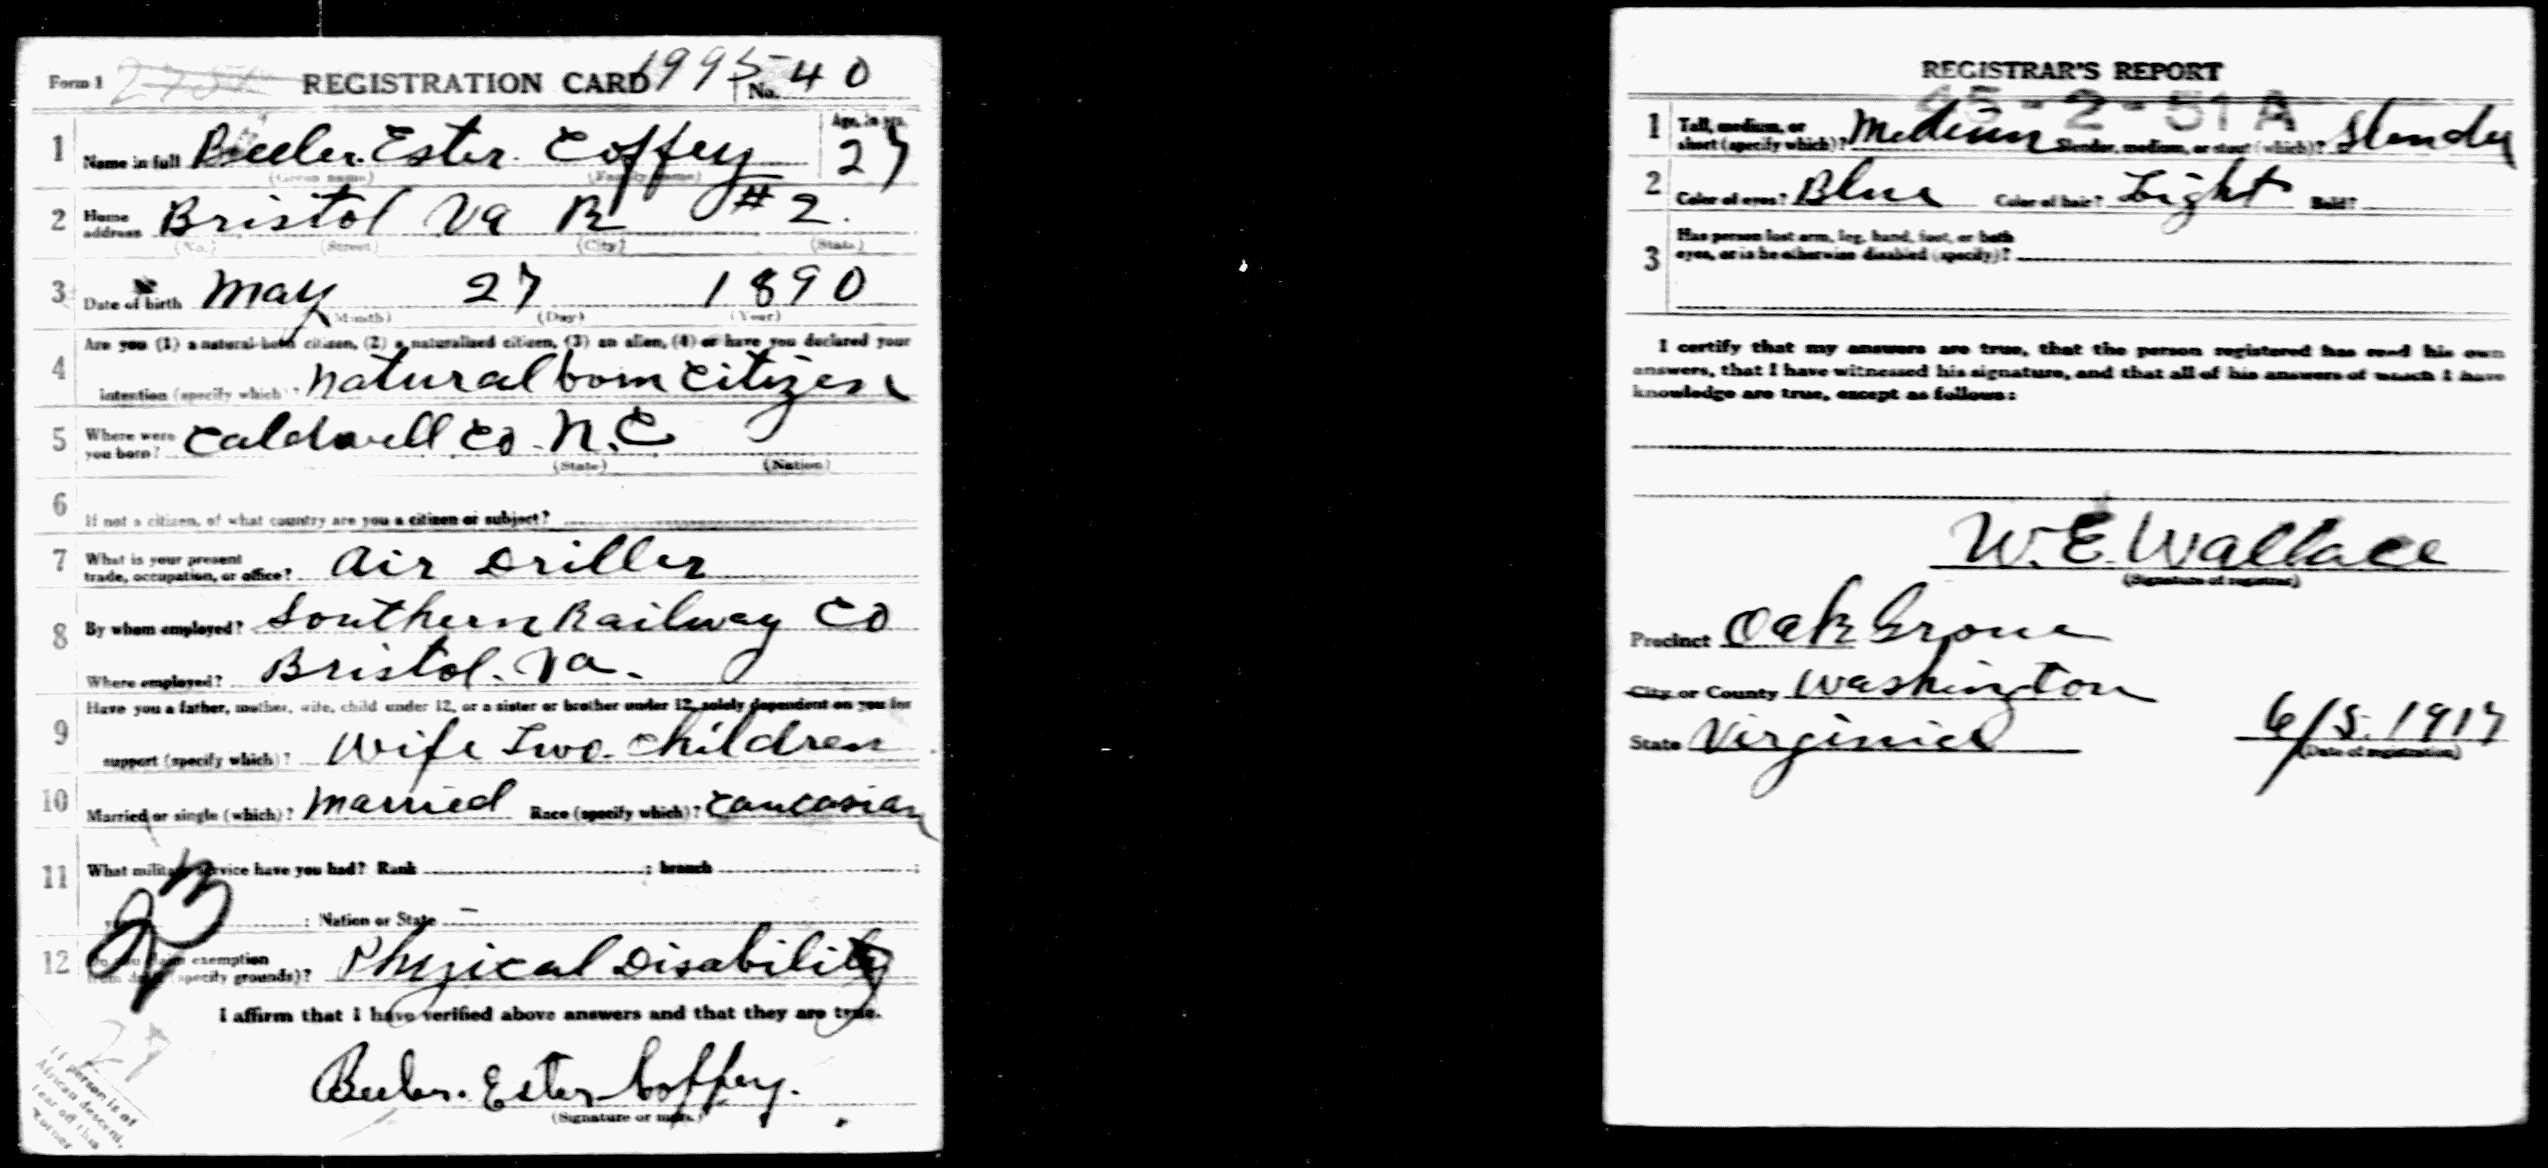 Form 1 REGISTRATION CARD 1995 No. 40
1 Name in full Beeler. Ester. Coffey Age, in yrs. 27
(Given name) (Family name)
2 Home address Bristol Va R #2.
(No.) (Street) (City) (State)
3 Date of birth May 27 1890
(Month) (Day) (Year)
4 Are you (1) a natural-born citizen, (2) a naturalized citizen, (3) an alien, (4) or have you declared your
intention (specify which)? natural born citizen
5 Where were you born? Caldwell Co. N.C
(State) (Nation)
6 If not a citizen, of what country are you a citizen or subject?
7 What is your present trade, occupation, or office? Air Driller
8 By whom employed? Southern Railway Co
Where employed? Bristol. Va.
9 Have you a father, mother, wife, child under 12, or a sister or brother under 12, solely dependent on you for
support (specify which)? Wife Two. children
10 Married or single (which)? Married Race (specify which)? Caucasian
11 What military service have you had? Rank ; branch ;
; Nation or State —
12 Do you claim exemption from draft (specify grounds)? Physical Disability
I affirm that I have verified above answers and that they are true.
Beeler. Ester Coffey.
(Signature or mark)
23
27
If person is of
African descent,
tear off this
corner
REGISTRAR'S REPORT
45-2-51 A
1 Tall, medium, or short (specify which)? Medium Slender, medium, or stout (which)? Slender
2 Color of eyes? Blue Color of hair? Light Bald?
3 Has person lost arm, leg, hand, foot, or both
eyes, or is he otherwise disabled (specify)?
I certify that my answers are true, that the person registered has read his own
answers, that I have witnessed his signature, and that all of his answers of which I have
knowledge are true, except as follows:
W. E. Wallace
(Signature of registrar)
Precinct Oak Grove
City or County Washington
State Virginia 6/5. 1917
(Date of registration)